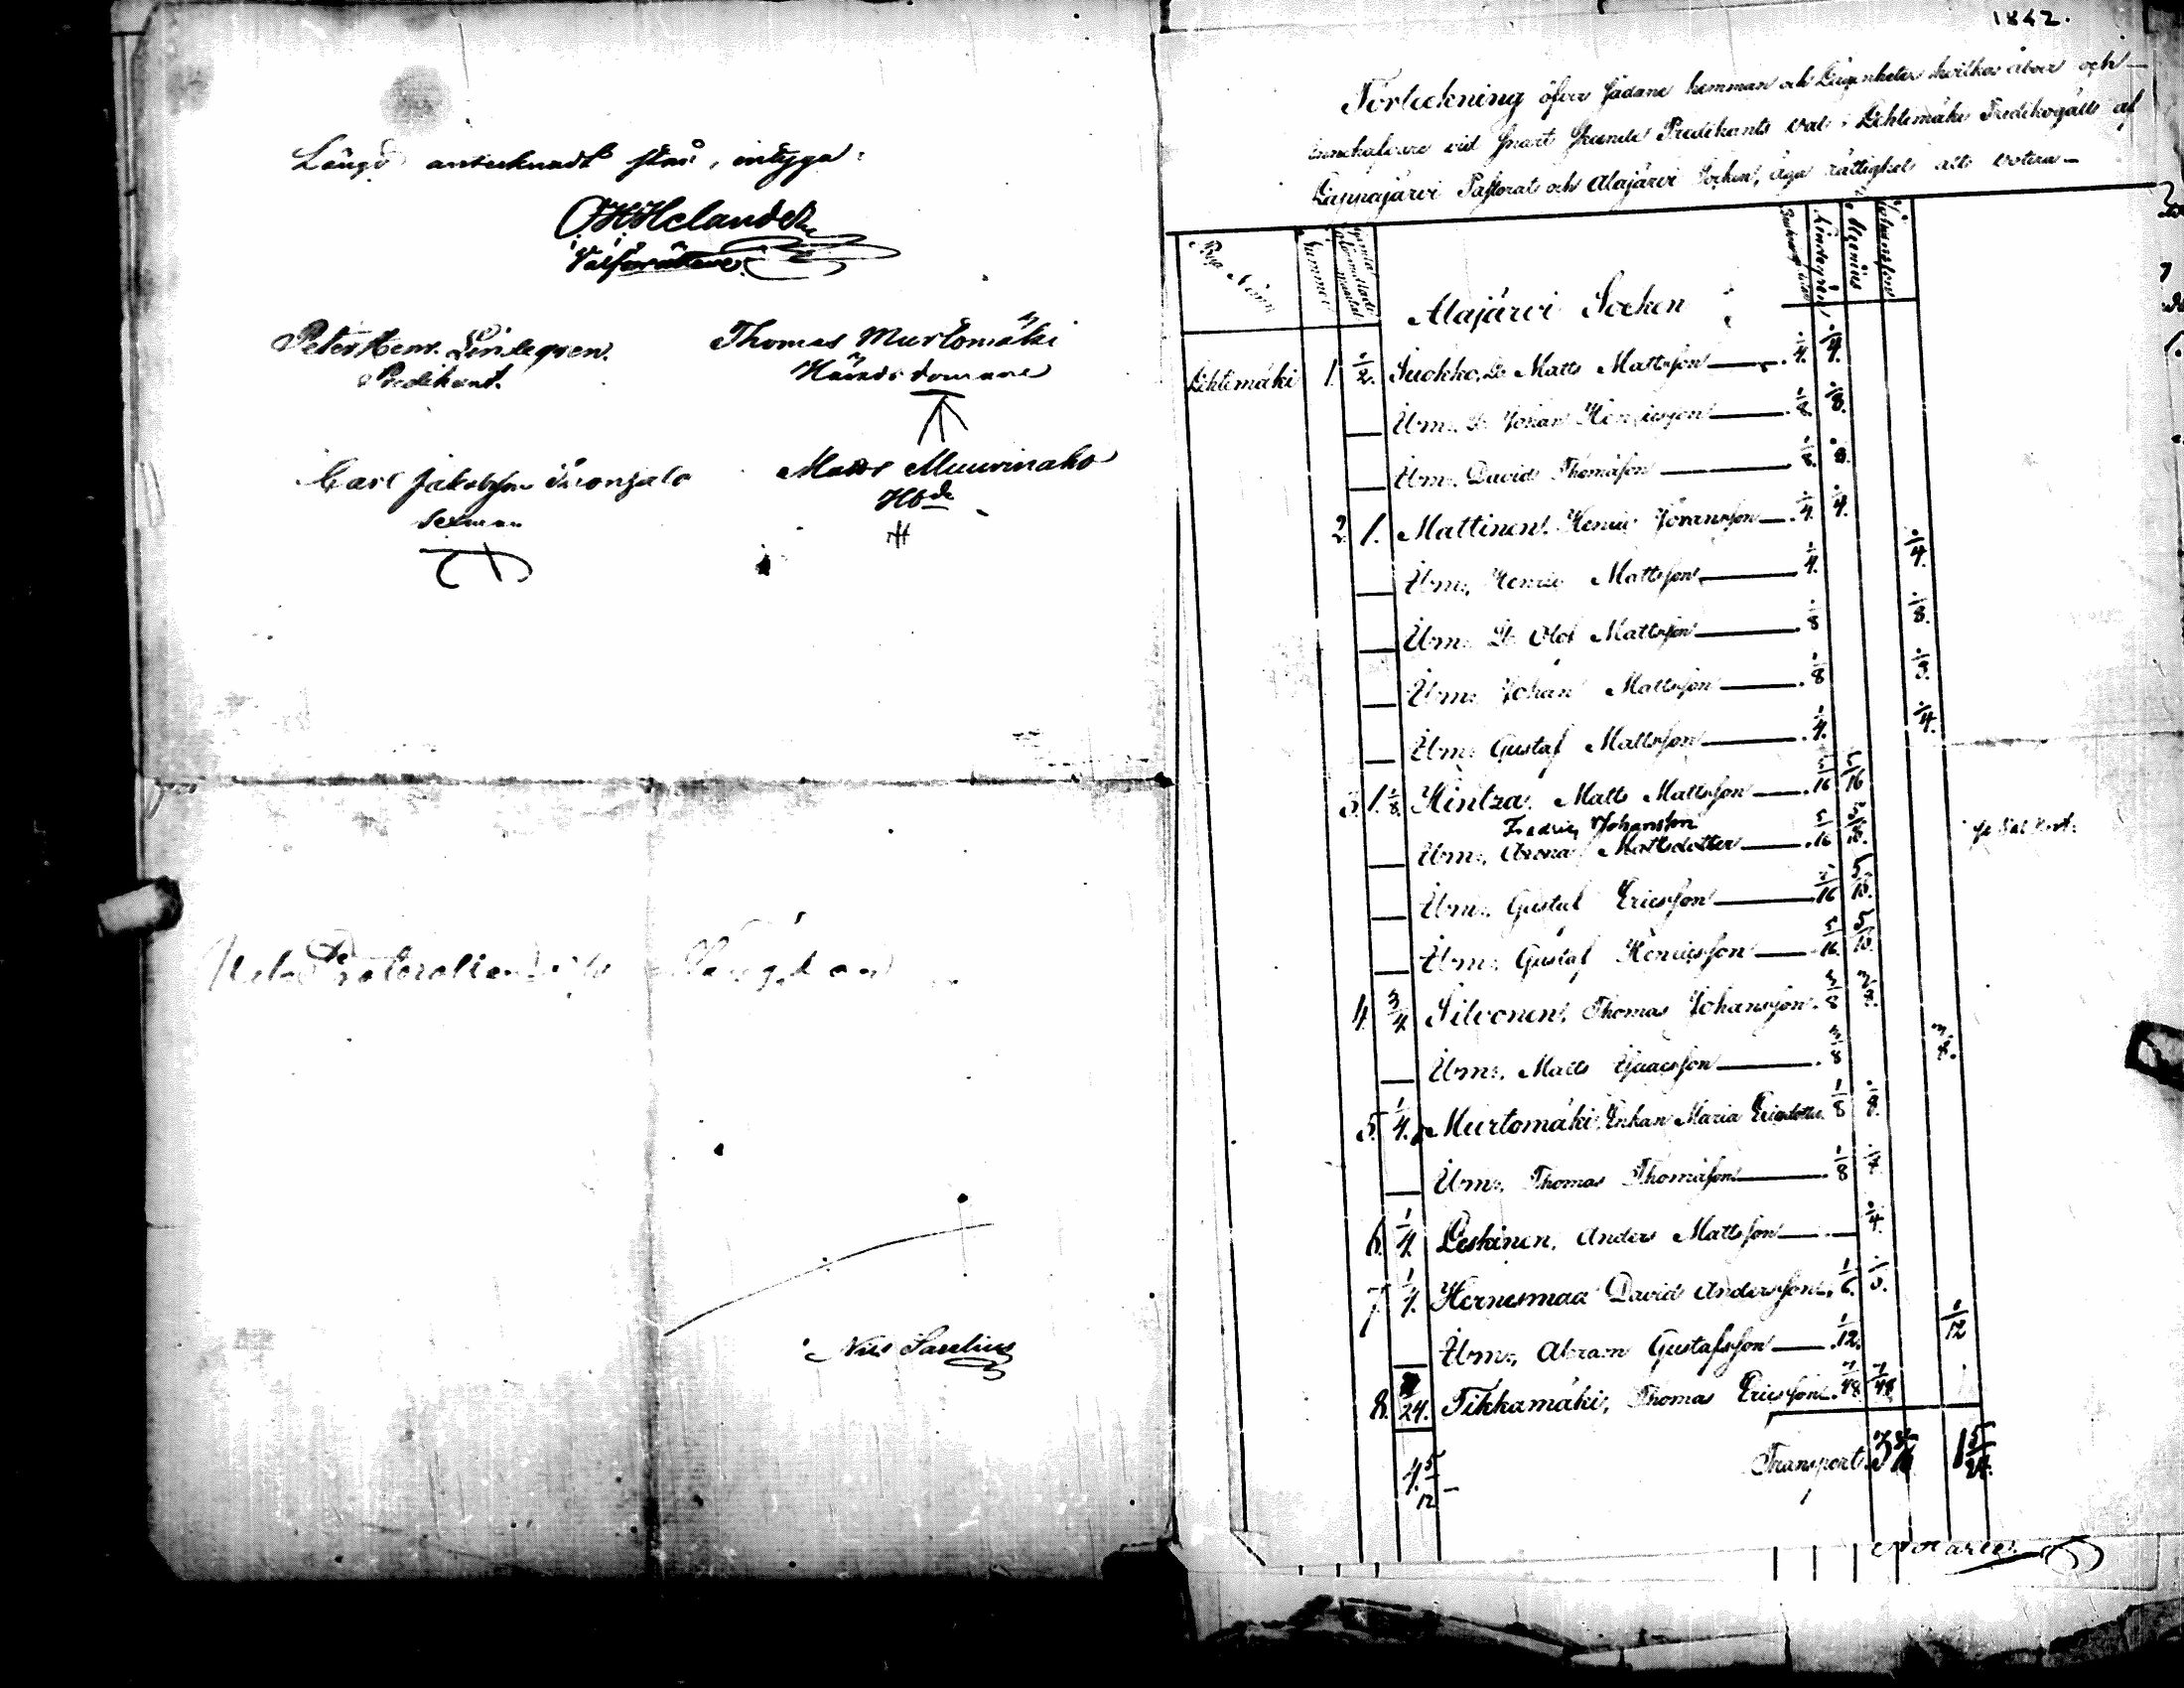 Längd antecknadt står, intyga:
O H Helander
Valförrättare
Peter Henr. Lindegren.
Predikant.
Thomas Murtomäki
Häradsdomare
Carl Jakobsson
Sexman
Matts Muurinaho
Hbde
Nils Saxelius
1842.
Förteckning öfver sådane hemman och Lägenheter hvilkas åboer och
innehafvare vid snart skeende Predikants val i Lehtimäki Predikogälls af
Lappajärvi Pastorat och Alajärvi Socken, äga rättighet att votera
Bya Namn
Nummer
Lindegren
Alcenius
Johansson
Alajärvi Socken
Lehtimäki 1. 1/2. Suokko, Matts Mattsson 1/4. 1/4.
Ibm: Johan Henricsson 1/8. 1/8.
Ibm: David Thomasson 1/8. 1/8.
2. 1. Mattinen, Henric Göransson 1/4. 1/4.
Ibm: Henric Mattsson 1/4. 1/4.
Ibm: Olof Mattsson 1/8 1/8.
Ibm: Johan Mattsson 1/8 1/8.
Ibm: Gustaf Mattsson 1/4. 1/4.
3. 1. 1/8 Hintza, Matts Mattsson 5/16 5/16
Fredric Johansson
Ibm: Mattsdotter 5/16 5/16.
Ibm: Gustaf Ericsson 5/16 5/16.
Ibm: Gustaf Henricsson 5/16. 5/16.
4. 3/4. Silvonen, Thomas Johansson 3/8 3/8.
Ibm: Matts Isaacsson 3/8 3/8.
5. 1/4. Murtomäki, Enkan Maria Ericsdotter 1/8 1/8.
Ibm: Thomas Thomasson 1/8
6. 1/4. Leskinen, Anders Mattsson 1/4.
7. 1/4. Hernesmaa David Andersson 1/6.
Ibm: Abram Gustafsson 1/12. 1/12
8. 7/24. Tikkamäki, Thomas Ericsson 7/48 7/48
4. 5/12 Transport 1 5/24.